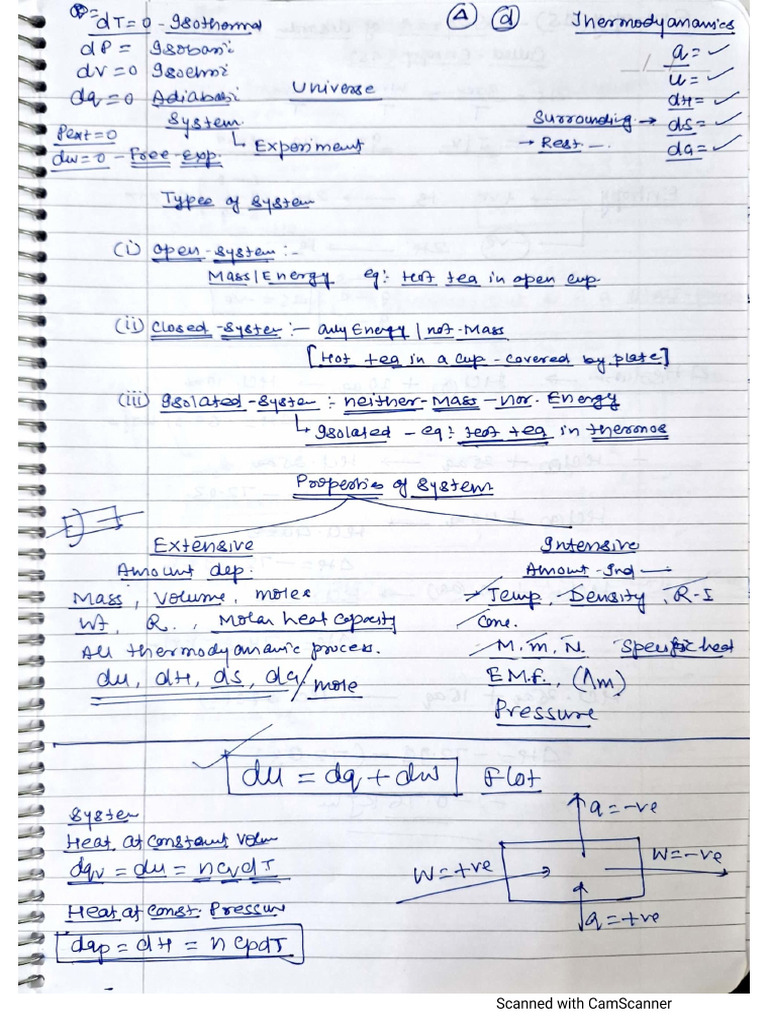 dT=0 - Isothermal
Δ d Thermodyanamics
dP = Isobari
q =
dv=0 Isochri
u =
dq=0 Adiabasi
Universe
dH =
System
Surrounding → dS =
Pext=0
Experiment
→ Rest -.
dq =
dw=0 - Free-exp.
Types of System
(i) open-system :-
Mass/Energy eg: Hot tea in open cup
(ii) closed-system :- only Energy | not-Mass
[Hot tea in a cup - covered by plate]
(iii) Isolated-system : neither-Mass-nor. Energy
Isolated - eg: Hot tea in thermos
Properties of System
Extensive
Intensive
Amount dep.
Amount-Ind —
Mass, Volume, moles
→ Temp, Density, R-I
Wt, R., Molar heat capacity
Conc.
All thermodyanamic process.
M, m, N. Specific heat
du, dH, ds, dq/mole
E.M.F., (Λm)
Pressure
du = dq + dw Flot
System
q = -ve
Heat at constant Volum
W=+ve
W=-ve
dqv = du = ncvdT
Heat at const. Pressure
q=+ve
dqp = dH = ncpdT
Scanned with CamScanner